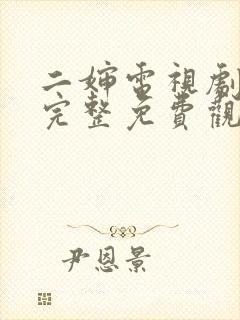 二婶電視劇
完整免費觀
尹恩景